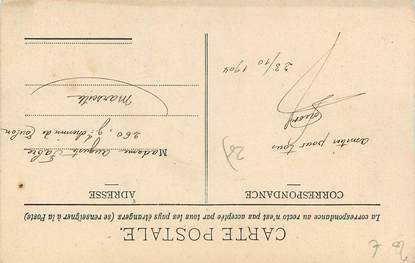 CARTE POSTALE.
La correspondance au recto n'est pas acceptée par tous les pays étrangers (se renseigner à la Poste)
CORRESPONDANCE
ADRESSE
amitiés pour tous
23/10 1904
Madame Auguste Fabre
260, g: chemin de Toulon
Marseille